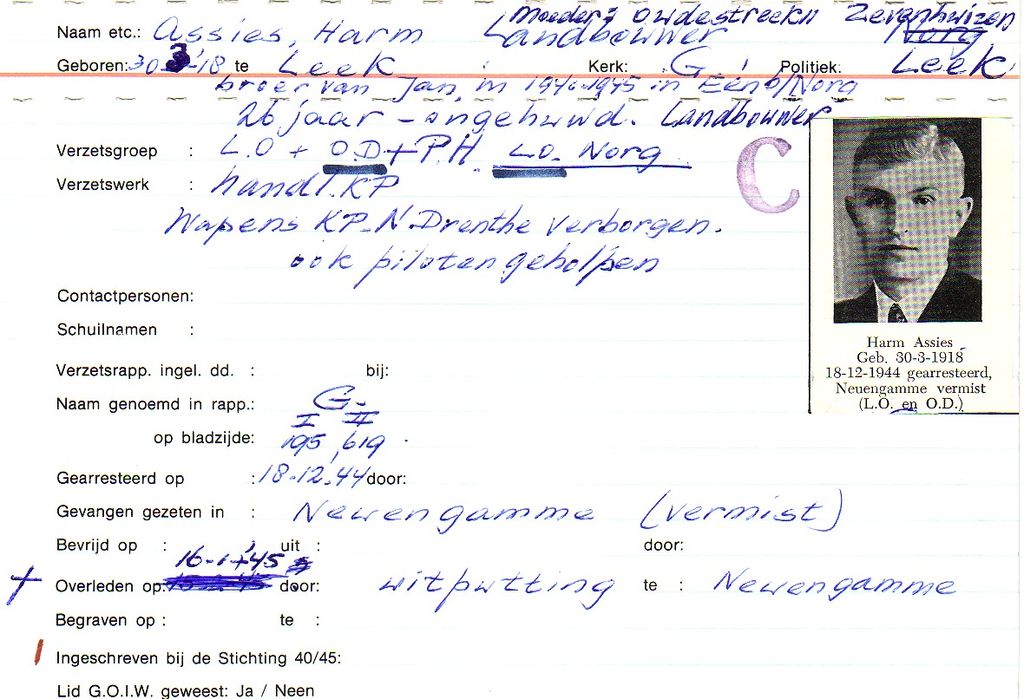 Moeder; Oudestreekn Zevenhuizen
Naam etc.: Assies, Harm Landbouwer Norg
Geboren: 30-3-'18 te Leek Kerk: G Politiek: Leek
broer van Jan, in 1940-1945 in Een o/Norg
26 jaar - ongehuwd. Landbouwer
Verzetsgroep : L.O + O.D + P.H L.O. Norg
Verzetswerk : handl. KP
Wapens KP-N-Drenthe verborgen.
ook piloten geholpen
C
Contactpersonen:
Schuilnamen :
Verzetsrapp. ingel. dd. : bij:
Naam genoemd in rapp.: G-
I II
op bladzijde: 195, 619
Gearresteerd op : 18-12-'44 door:
Gevangen gezeten in : Neuengamme (vermist)
Bevrijd op : uit : door:
16-1-'45
Overleden op: door: uitputting te : Neuengamme
Begraven op : te :
Ingeschreven bij de Stichting 40/45:
Lid G.O.I.W. geweest: Ja / Neen
Harm Assies
Geb. 30-3-1918
18-12-1944 gearresteerd,
Neuengamme vermist
(L.O. en O.D.)